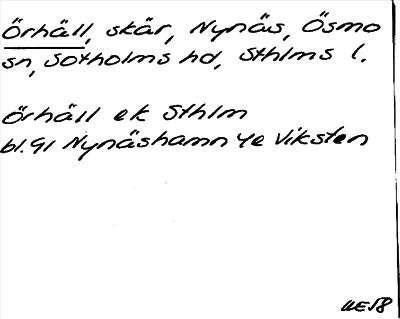 Örhäll, skär, Nynäs, Ösmo
sn, Sotholms hd, Sthlms l.
Örhäll ek Sthlm
bl. 91 Nynäshamn 4e Viksten
WE58